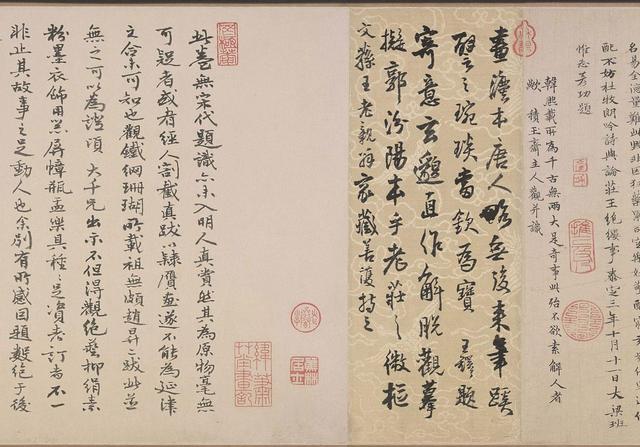 配不妨杜牧朗吟詩與論莊王絕纓事泰定三年十月十一日大梁班
惟志彥功題
韓熙載所為千古無兩大是奇事此殆不欲索解人者
歟 積玉齋主人觀并識
畫法本唐人略無後來筆蹊
譬之琬琰當欽為寶 王鐸題
寄意玄邈直作解脫觀摹
擬郭汾陽本乎老莊之微樞
文蓀王老親翁家藏善護持之
此卷無宋代題識亦未入明人真賞然其為原物毫無
可疑者或者經人割截真跋以隸贗畫遂不能為延津
之合亦可知也觀鐵網珊瑚所載祖無頗趙昇二跋此並
無之可以為證頃 大千兄出示不但得觀絕藝抑絹素
粉墨衣飾用器屏幛瓶盂樂具種種足資考訂者不一
非止其故事之足動人也余別有所感因題數絕于後